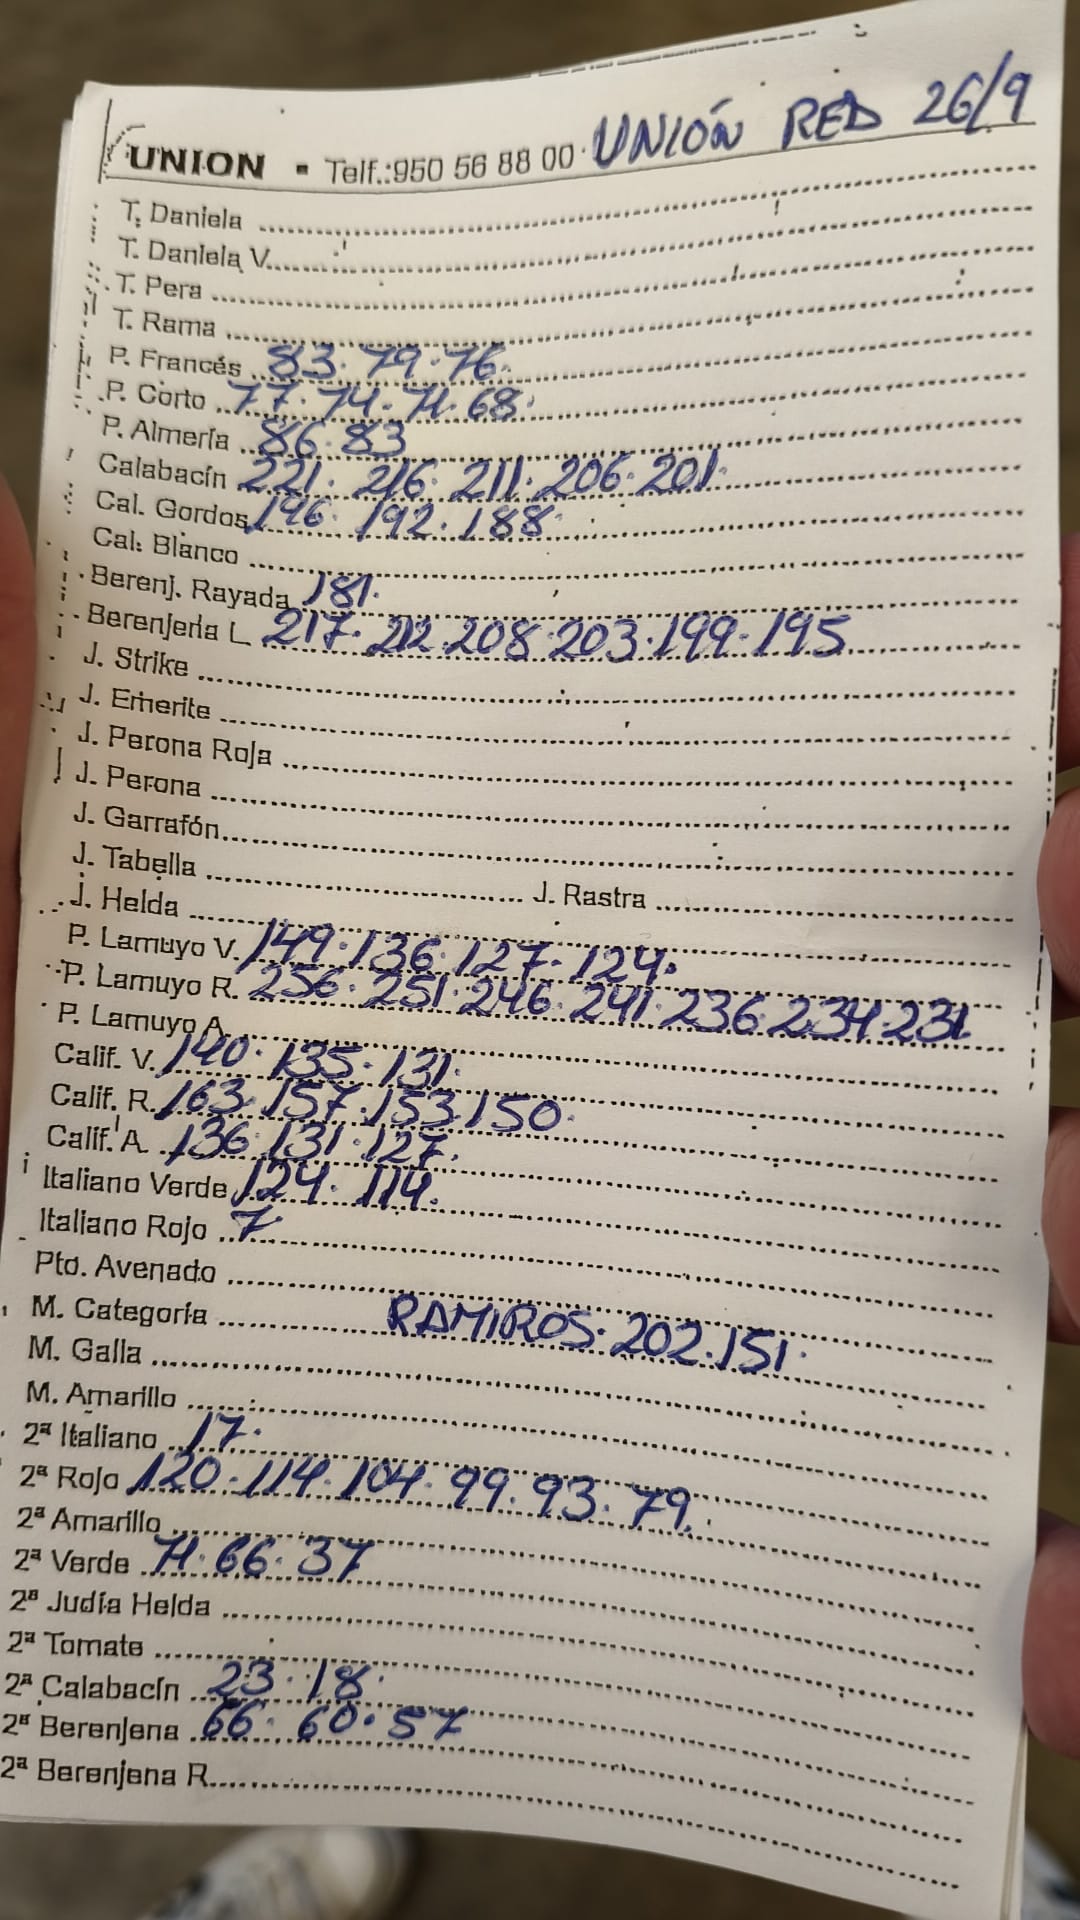 UNION - Telf.:950 56 88 00 UNIÓN RED 26/9
T. Daniela
T. Daniela V.
T. Pera
T. Rama
P. Francés 83. 79. 76.
P. Corto 77. 74. 71. 68.
P. Almería 86. 83
Calabacín 221. 216. 211. 206. 201.
Cal. Gordos 196. 192. 188.
Cal. Blanco
Berenj. Rayada 181.
Berenjena L. 217. 212. 208. 203. 199. 195
J. Strike
J. Emerite
J. Perona Roja
J. Perona
J. Garrafón
J. Tabella J. Rastra
J. Helda
P. Lamuyo V. 149. 136. 127. 124.
P. Lamuyo R. 256. 251. 246. 241. 236. 234. 231.
P. Lamuyo A.
Calif. V. 140. 135. 131.
Calif. R. 163. 157. 153. 150.
Calif. A. 136. 131. 127.
Italiano Verde 124. 114.
Italiano Rojo 7.
Pto. Avenado
M. Categoría RAMIROS. 202. 151.
M. Galla
M. Amarillo
2ª Italiano 17.
2ª Rojo 120. 114. 104. 99. 93. 79.
2ª Amarillo
2ª Verde 71. 66. 37
2ª Judía Helda
2ª Tomate
2ª Calabacín 23. 18.
2ª Berenjena 66. 60. 57
2ª Berenjena R.